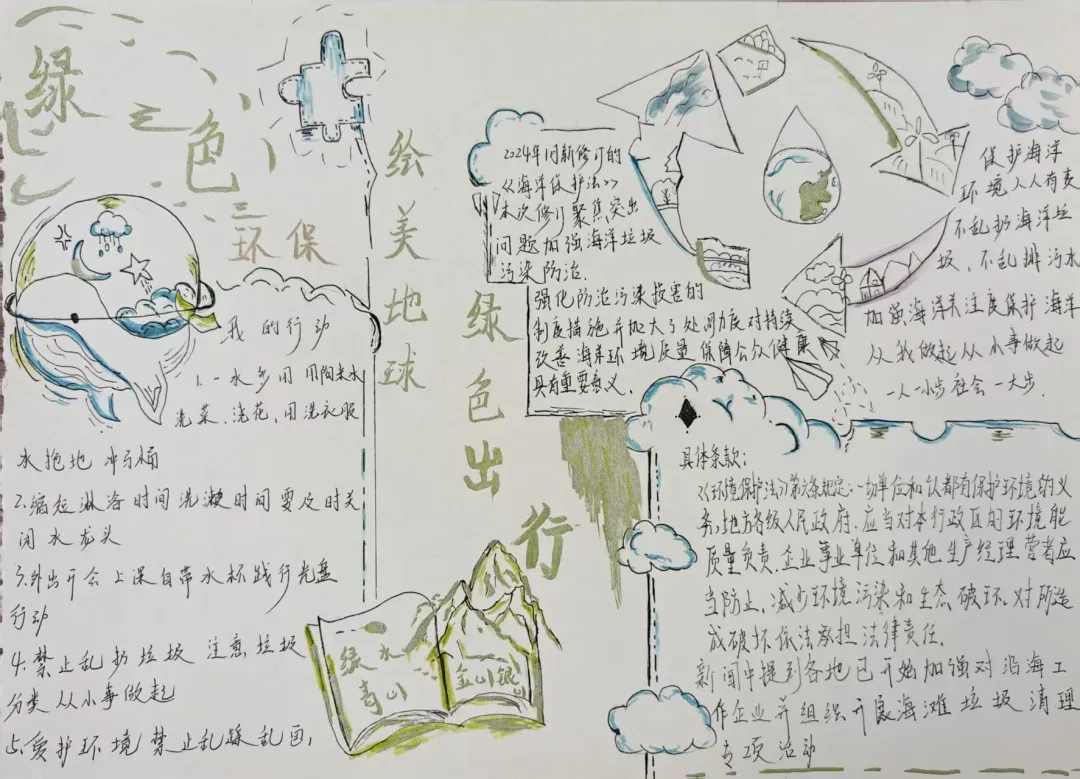 绿色
环保
绘美地球
绿色出行
我的行动
1.一水多用 用淘米水
洗菜、浇花、用洗衣服
水拖地 冲马桶
2.缩短淋浴时间 洗漱时间要及时关
闭水龙头
3.外出开会上课自带水杯践行光盘
行动
4.禁止乱扔垃圾 注意垃圾
分类 从小事做起
5.爱护环境禁止乱踩乱画,
绿水
青山
金山银山
2024年
新修订的
《海洋保护法》
本次修订聚焦突出
问题加强海洋垃圾
污染防治.
强化防治污染损害的
制度措施并加大了处罚力度对持续
改善海岸环境质量 保障公众健康
具有重要意义.
保护海洋
环境人人有责
不乱扔海洋垃
圾、不乱排污水
加强海洋关注度保护海洋
从我做起从小事做起
一人一小步社会一大步.
具体条款:
《环境保护法》第六条规定:一切单位和
都有保护环境的义
务,地方各级人民政府.应当对本行政区的环境
质量负责.企业事业单位和其他生产经理营者应
当防止、减少环境污染和生态破环,对所造
成破坏依法承担法律责任.
新闻中提到各地已开始加强对沿海工
作企业并组织开展海滩垃圾清理
专项活动